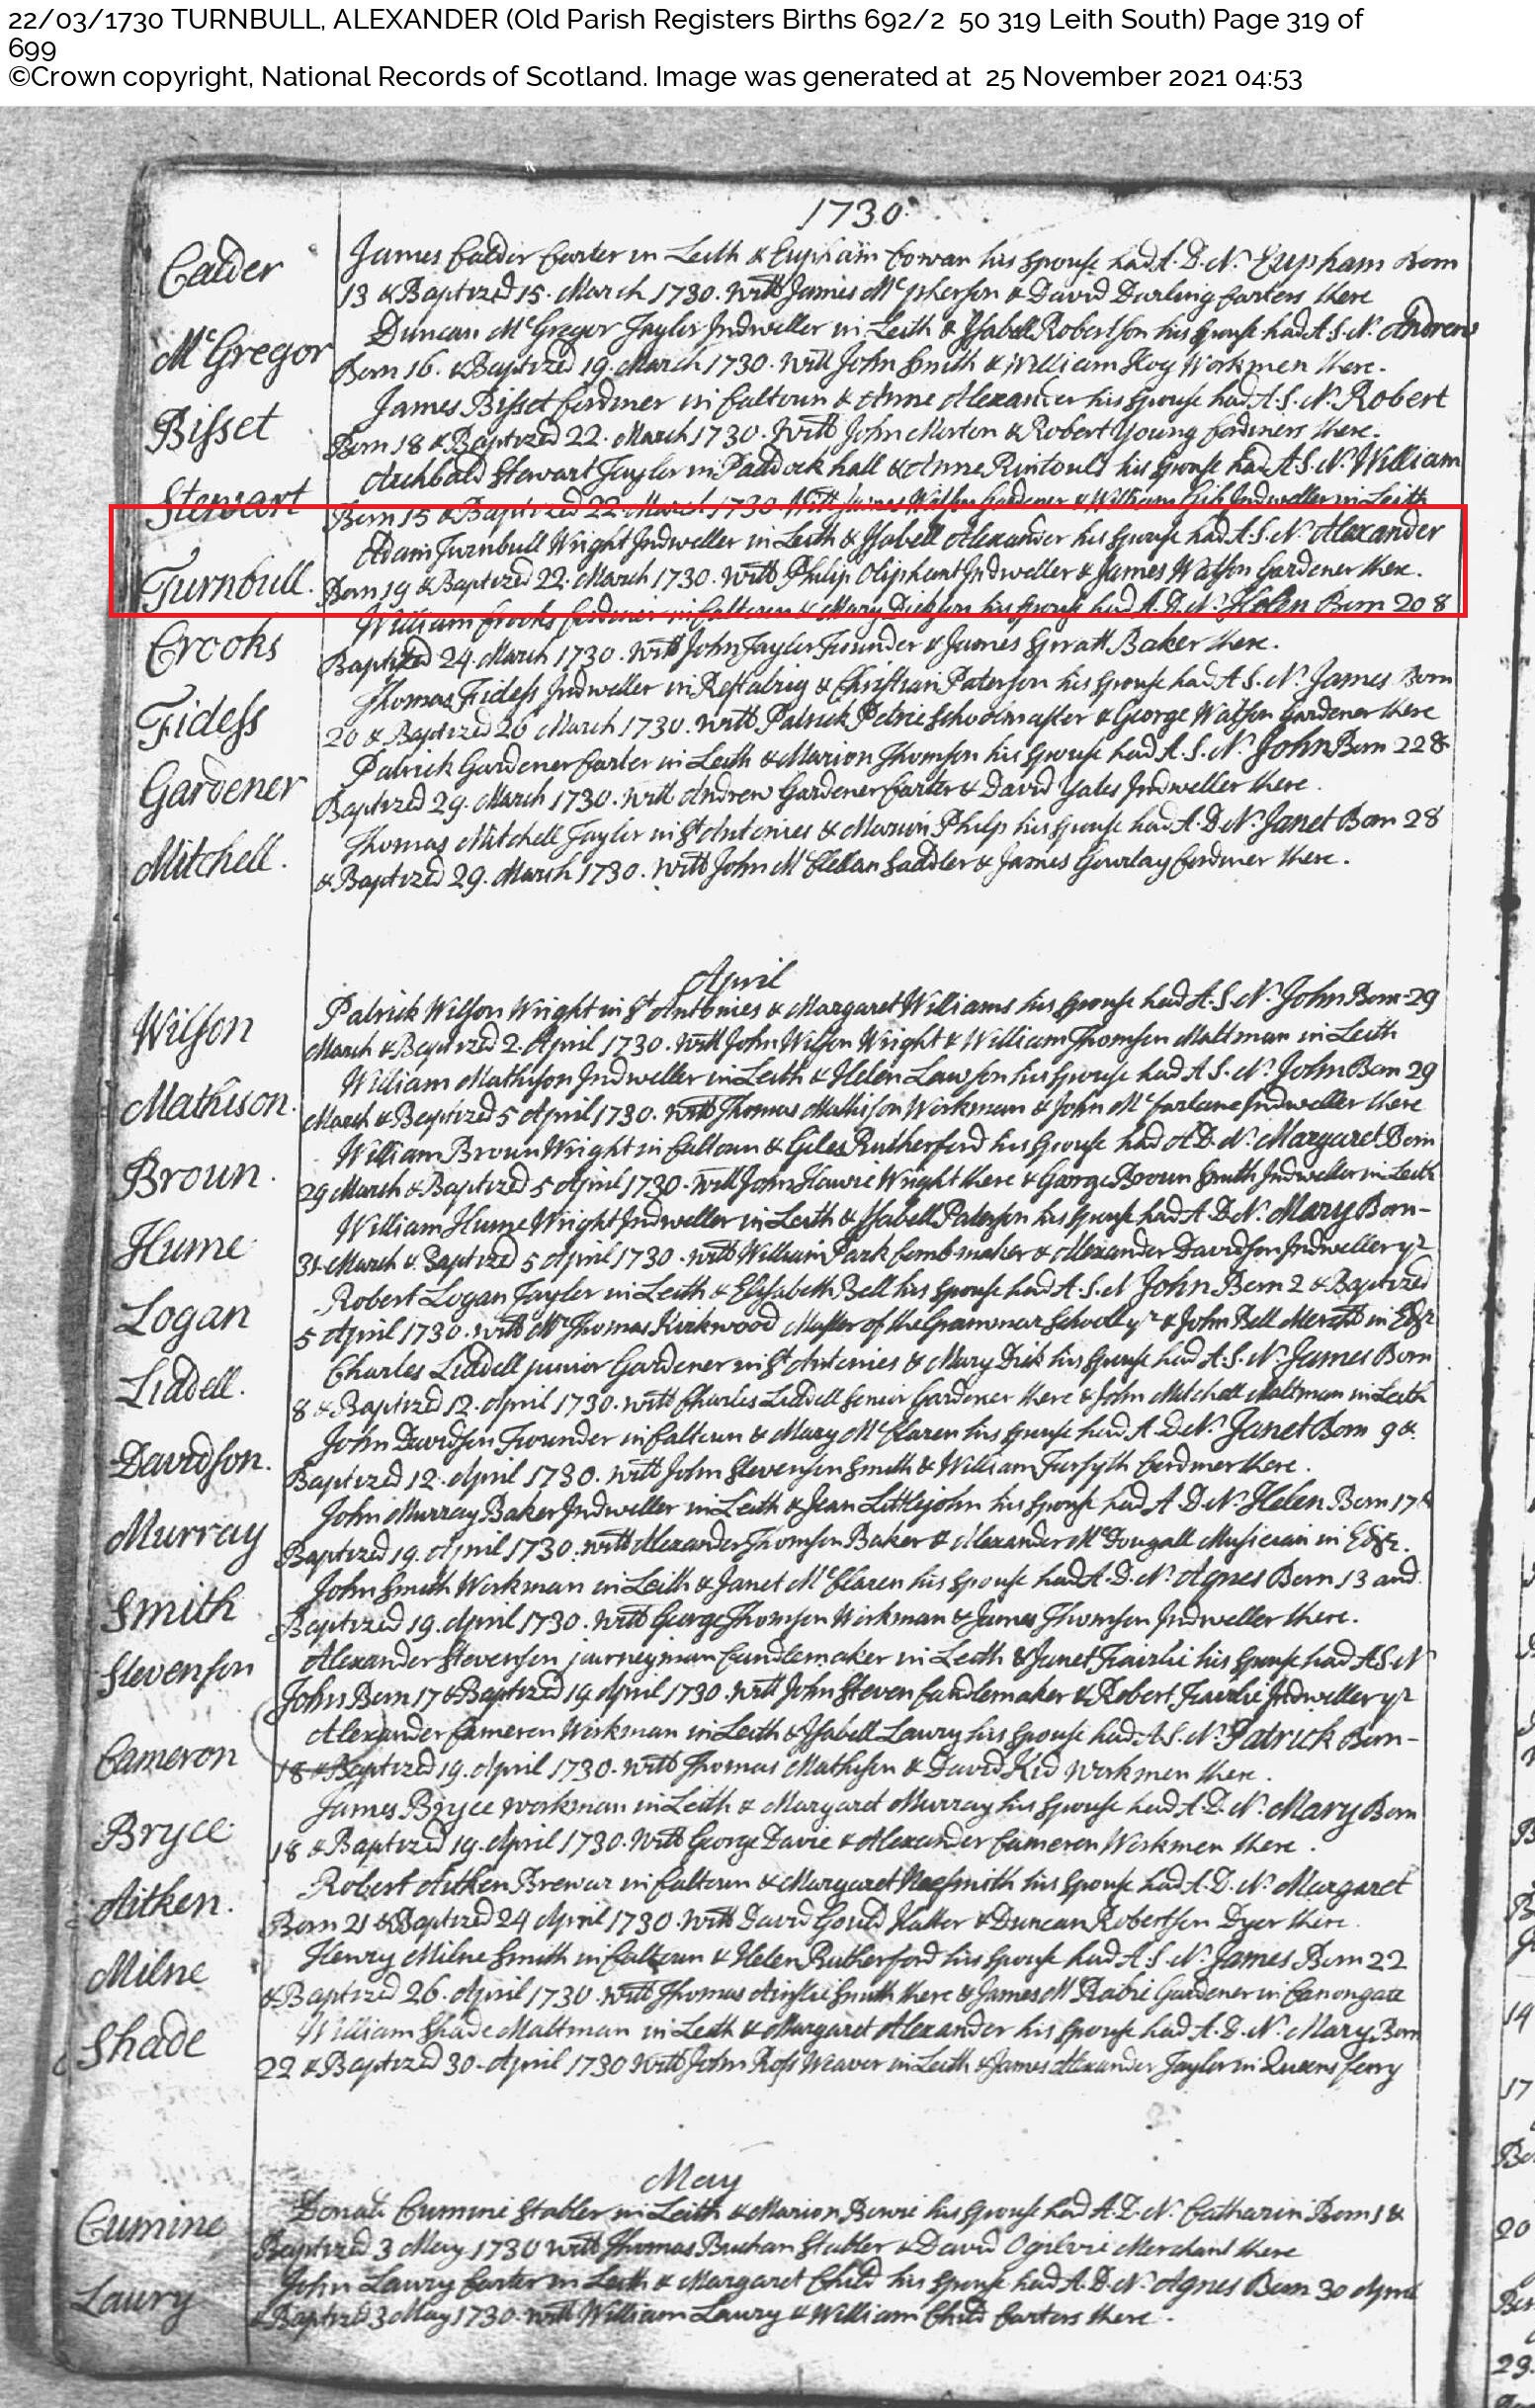 22/03/1730 TURNBULL, ALEXANDER (Old Parish Registers Births 692/2 50 319 Leith South) Page 319 of
699
©Crown copyright, National Records of Scotland. Image was generated at 25 November 2021 04:53
1730
Calder
James Calder Carter in Leith & Eupham Cowan his spouse had A. D. N. Eupham Born
13 & Baptized 15. March 1730. Witt James McPherson & David Darling Carters there
McGregor
Duncan McGregor Taylor Indweller in Leith & Isabell Robertson his spouse had A. S. N. Andrew
Born 16. & Baptized 19. March 1730. Witt John Smith & William Hog Workmen there.
Bisset
James Bisset Cordiner in Caltoun & Anne Alexander his spouse had A. S. N. Robert
Born 18 & Baptized 22. March 1730. Witt John Morton & Robert Young Cordiners there.
Stewart
Archbald Stewart Taylor in Paddock hall & Anne Rintould his spouse had A. S. N. William
Born 15 & Baptized 22. March 1730. Witt James Watson Gardener & William Indweller in Leith
Turnbull.
Adam Turnbull Wright Indweller in Leith & Isabell Alexander his spouse had A. S. N. Alexander
Born 19 & Baptized 22. March 1730. Witt Philip Oliphant Indweller & James Watson Gardener there.
Crooks
William Crooks Cordiner in Caltoun & Mary Dickson his spouse had A. D. N. Helen Born 20 &
Baptized 24. March 1730. Witt John Taylor Founder & James Spratt Baker there.
Fidess
Thomas Fidess Indweller in Restalrig & Christian Paterson his spouse had A. S. N. James Born
20 & Baptized 26 March 1730. Witt Patrick Petrie Schoolmaster & George Watson Gardener there
Gardener
Patrick Gardener Carter in Leith & Marion Thomson his spouse had A. S. N. John Born 22 &
Baptized 29. March 1730. Witt Andrew Gardener Carter & David Yates Indweller there.
Mitchell.
Thomas Mitchell Taylor in St Antonies & Marion Philp his spouse had A. D. N. Janet Born 28
& Baptized 29. March 1730. Witt John McClellan Saddler & James Gourlay Cordiner there.
April
Wilson
Patrick Wilson Wright in St Antonies & Margaret Williams his spouse had A. S. N. John Born 29
March & Baptized 2. April 1730. Witt John Wilson Wright & William Thomson Maltman in Leith
Mathison.
William Mathison Indweller in Leith & Helen Lawson his spouse had A. S. N. John Born 29
March & Baptized 5 April 1730. Witt Thomas Mathison Workman & John McFarlane Indweller there
Broun.
William Broun Wright in Caltoun & Giles Rutherford his spouse had A D. N. Margaret Born
29 March & Baptized 5 April 1730. Witt John Hawie Wright there & George Broun Smith Indweller in Leith
Hume
William Hume Wright Indweller in Leith & Isabell Paterson his spouse had A. D. N. Mary Born-
31 March & Baptized 5 April 1730. Witt William Park Comb-maker & Alexander Davidson Indweller yr
Logan
Robert Logan Taylor in Leith & Elisabeth Bell his spouse had A. S. N John Born 2 & Baptized
5 April 1730. Witt Mr Thomas Kirkwood Master of the Grammar Schooll yr & John Bell Mercht in Edr
Liddell.
Charles Liddell junior Gardener in St Antonies & Mary Dick his spouse had A. S. N. James Born
8 & Baptized 12. April 1730. Witt Charles Liddell Senior Gardener there & John Mitchell Maltman in Leith
Davidson.
John Davidson Founder in Caltoun & Mary McClaren his spouse had A. D. N. Janet Born 9 &.
Baptized 12. April 1730. Witt John Stevenson Smith & William Forsyth Cordiner there.
Murray
John Murray Baker Indweller in Leith & Jean Littlejohn his spouse had A. D. N. Helen Born 17 &
Baptized 19. April 1730. Witt Alexander Thomson Baker & Alexander McDougall Musician in Edr.
Smith
John Smith Workman in Leith & Janet McClaren his spouse had A. D. N. Agnes Born 13 and
Baptized 19. April 1730. Witt George Thomson Workman & James Thomson Indweller there.
Stevenson
Alexander Stevenson journeyman Candlemaker in Leith & Janet Fairlie his spouse had A S N
John Born 17 & Baptized 19. April 1730. Witt John Steven Candlemaker & Robert Fairlie Indweller yr
Cameron
Alexander Cameron Workman in Leith & Isabell Laury his spouse had A. S. N. Patrick Born-
18 & Baptized 19. April 1730. Witt Thomas Mathison & David Kid Workmen there.
Bryce
James Bryce workman in Leith & Margaret Murray his spouse had A. D. N. Mary Born
18 & Baptized 19. April 1730. Witt George Davie & Alexander Cameron Workmen there.
Aitken.
Robert Aitken Brewar in Caltoun & Margaret Naesmith his spouse had A. D. N. Margaret
Born 21 & Baptized 24 April 1730. Witt David Gould Hatter & Duncan Robertson Dyer there.
Milne
Henry Milne Smith in Caltoun & Helen Rutherford his spouse had A. S. N. James Born 22
& Baptized 26. April 1730. Witt Thomas Ainslie Smith there & James McRabie Gardener in Canongate
Shade
William Shade Maltman in Leith & Margaret Alexander his spouse had A. D. N. Mary Born
22 & Baptized 30. April 1730 Witt John Ross Weaver in Leith & James Alexander Taylor in Queensferry
May
Cumine
Donald Cumine Stabler in Leith & Marion Bowie his spouse had A. D. N. Catharin Born 1 &
Baptized 3 May 1730 Witt Thomas Buchan Stabler & David Ogilvie Merchant there
Laury
John Laury Carter in Leith & Margaret Child his spouse had A. D. N. Agnes Born 30 April
& Baptized 3 May 1730. Witt William Laury & William Child Carters there.
14
17
20
29.